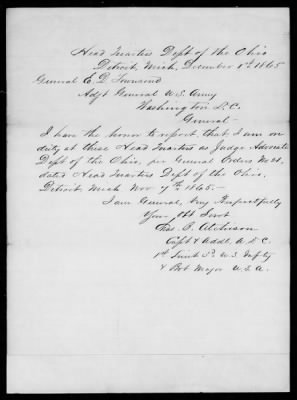 Head Quarters Dept of the Ohio
Detroit, Mich, December 1st 1865
General E. D. Townsend
Adjt General U.S. Army
Washington D.C.
General-
I have the honor to report that I am on
duty at these Head Quarters as Judge Advocate
Dept of the Ohio, per General Orders No
dated Head Quarters Dept of the Ohio,
Detroit Mich Nov 7th 1865.-
I am General, Very Respectfully
Your Obt Servt
Chas. B. Atchison
Capt & Addl. A D C
1st Lieut 3d U.S. Infty
& Bvt Major U.S.A.